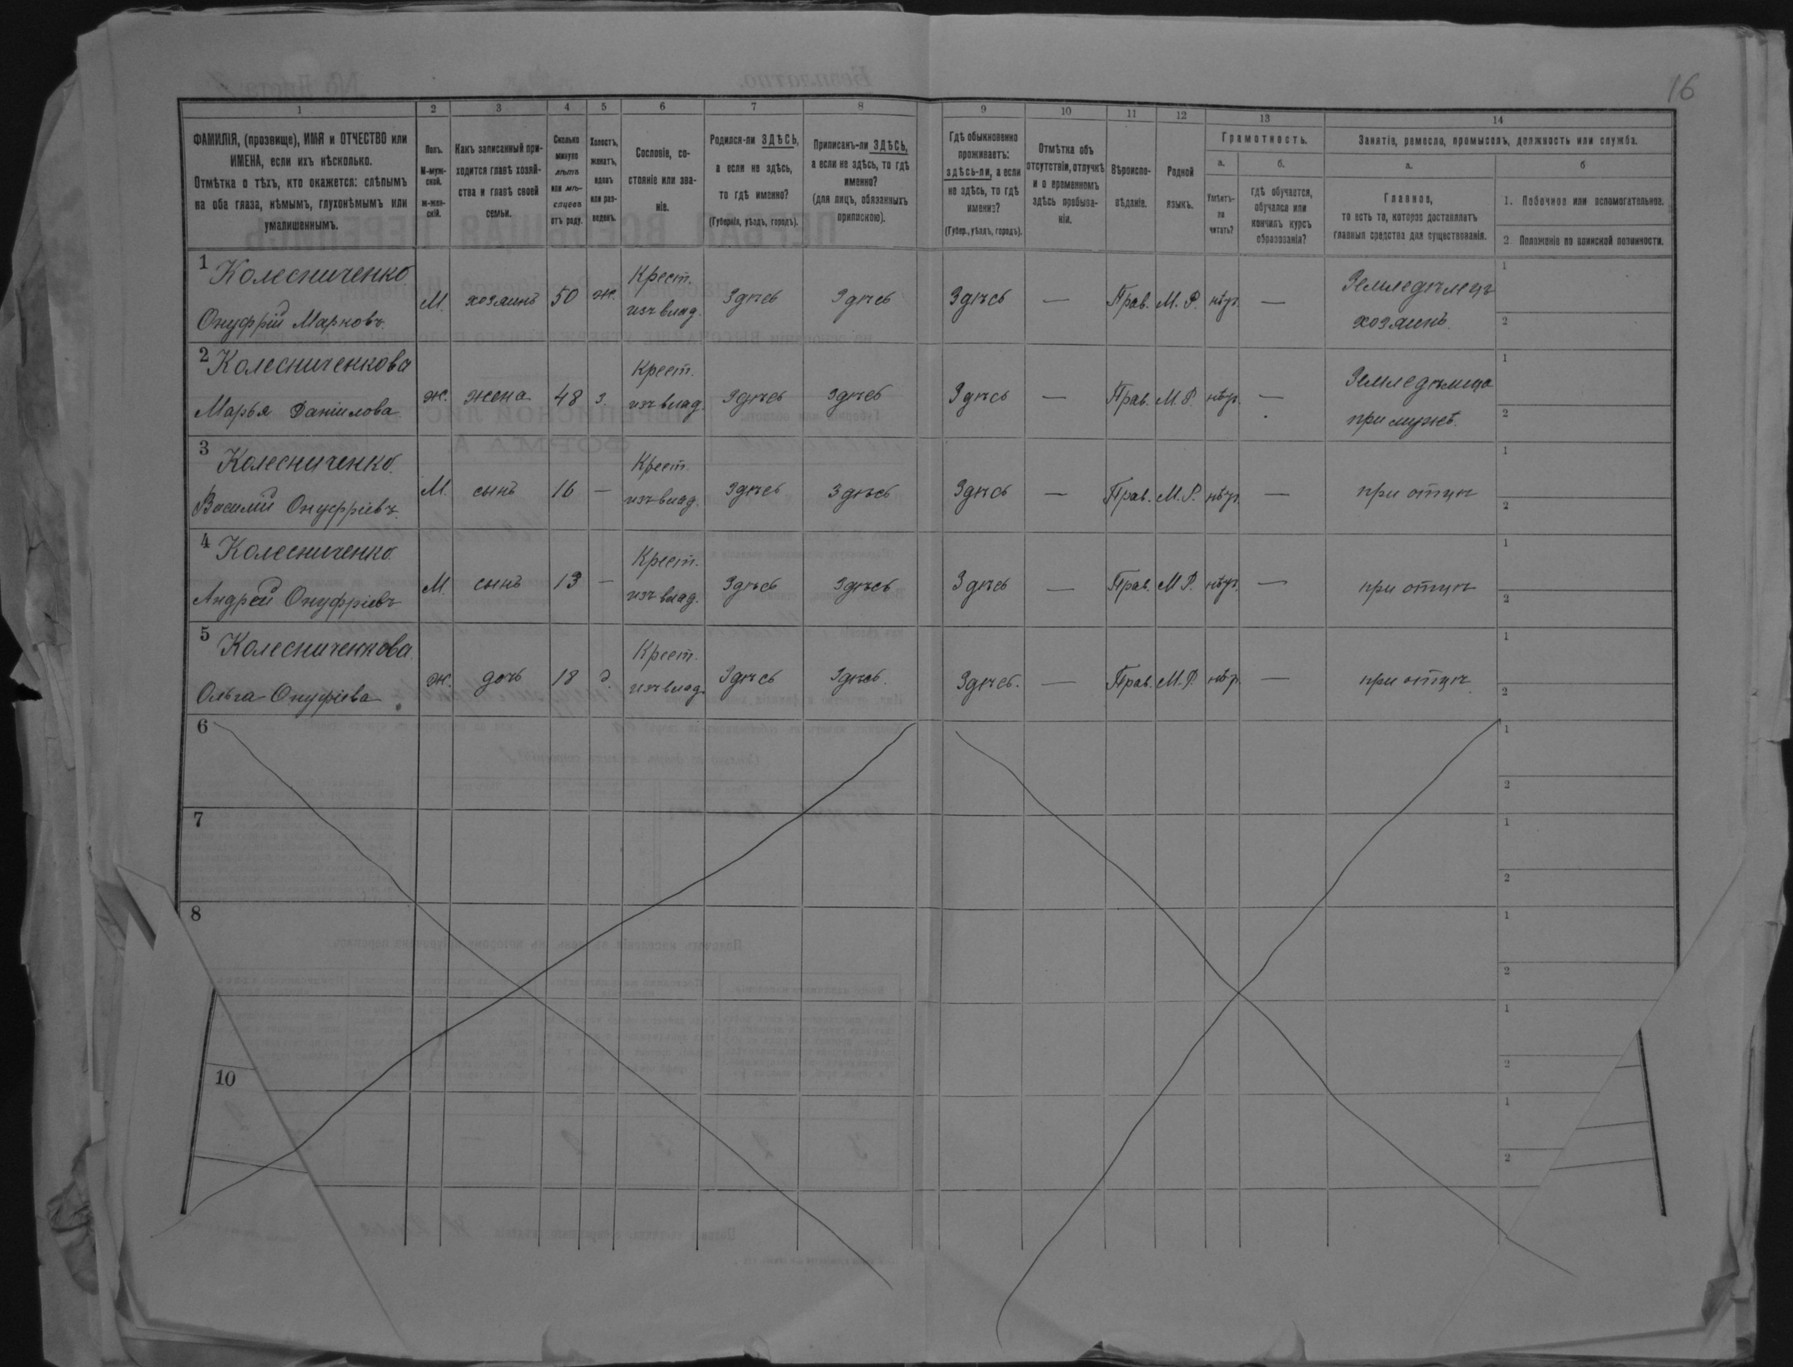 16
1 2 3 4 5 6 7 8 9 10 11 12 13 14
ФАМИЛІЯ, (прозвище), ИМЯ и ОТЧЕСТВО или
ИМЕНА, если ихъ нѣсколько.
Отмѣтка о тѣхъ, кто окажется: слѣпымъ
на оба глаза, нѣмымъ, глухонѣмымъ или
умалишеннымъ.
Полъ.
М-муж-
ской.
Ж-жен-
скій.
Какъ записанный при-
ходится главѣ хозяй-
ства и главѣ своей
семьи.
Сколько
минуло
лѣтъ
или мѣ-
сяцевъ
отъ роду.
Холостъ,
женатъ,
вдовъ
или раз-
веденъ.
Сословіе, со-
стояніе или зва-
ніе.
Родился-ли ЗДѢСЬ,
а если не здѣсь,
то гдѣ именно?
(Губернія, уѣздъ, городъ).
Приписанъ-ли ЗДѢСЬ,
а если не здѣсь, то гдѣ
именно?
(для лицъ, обязанныхъ
припискою).
Гдѣ обыкновенно
проживаетъ:
здѣсь-ли, а если
не здѣсь, то гдѣ
именно?
(Губер., уѣздъ, городъ).
Отмѣтка объ
отсутствіи, отлучкѣ
и о временномъ
здѣсь пребыва-
ніи.
Вѣроиспо-
вѣданіе.
Родной
языкъ.
Грамотность.
а.
Умѣетъ-
ли
читать?
б.
гдѣ обучается,
обучался или
кончилъ курсъ
образованія?
Занятіе, ремесло, промыселъ, должность или служба.
а.
Главное,
то есть то, которое доставляетъ
главныя средства для существованія.
б
1. Побочное или вспомогательное.
2 Положеніе по воинской повинности.
1 Колесниченко
Онуфрій Марковъ. М. хозяинъ 50 ж. Крест.
изъ влад. Здѣсь Здѣсь Здѣсь — Прав. М. Р. нѣтъ — Земледѣлецъ
хозяинъ. 1
2
2 Колесниченкова
Марья Даніилова ж. жена 48 з Крест.
изъ влад. Здѣсь Здѣсь Здѣсь — Прав. М. Р. нѣтъ — Земледѣлица
при мужѣ. 1
2
3 Колесниченко
Василій Онуфріевъ. М. сынъ 16 — Крест.
изъ влад. Здѣсь Здѣсь Здѣсь — Прав. М. Р. нѣтъ — при отцѣ 1
2
4 Колесниченко
Андрей Онуфріевъ М. сынъ 13 — Крест.
изъ влад. Здѣсь Здѣсь Здѣсь — Прав. М Р. нѣтъ — при отцѣ 1
2
5 Колесниченкова
Ольга Онуфріева ж. дочь 18 д. Крест.
изъ влад. Здѣсь Здѣсь. Здѣсь. — Прав. М. Р нѣтъ — при отцѣ 1
2
6 1
2
7 1
2
8 1
2
1
2
10 1
2